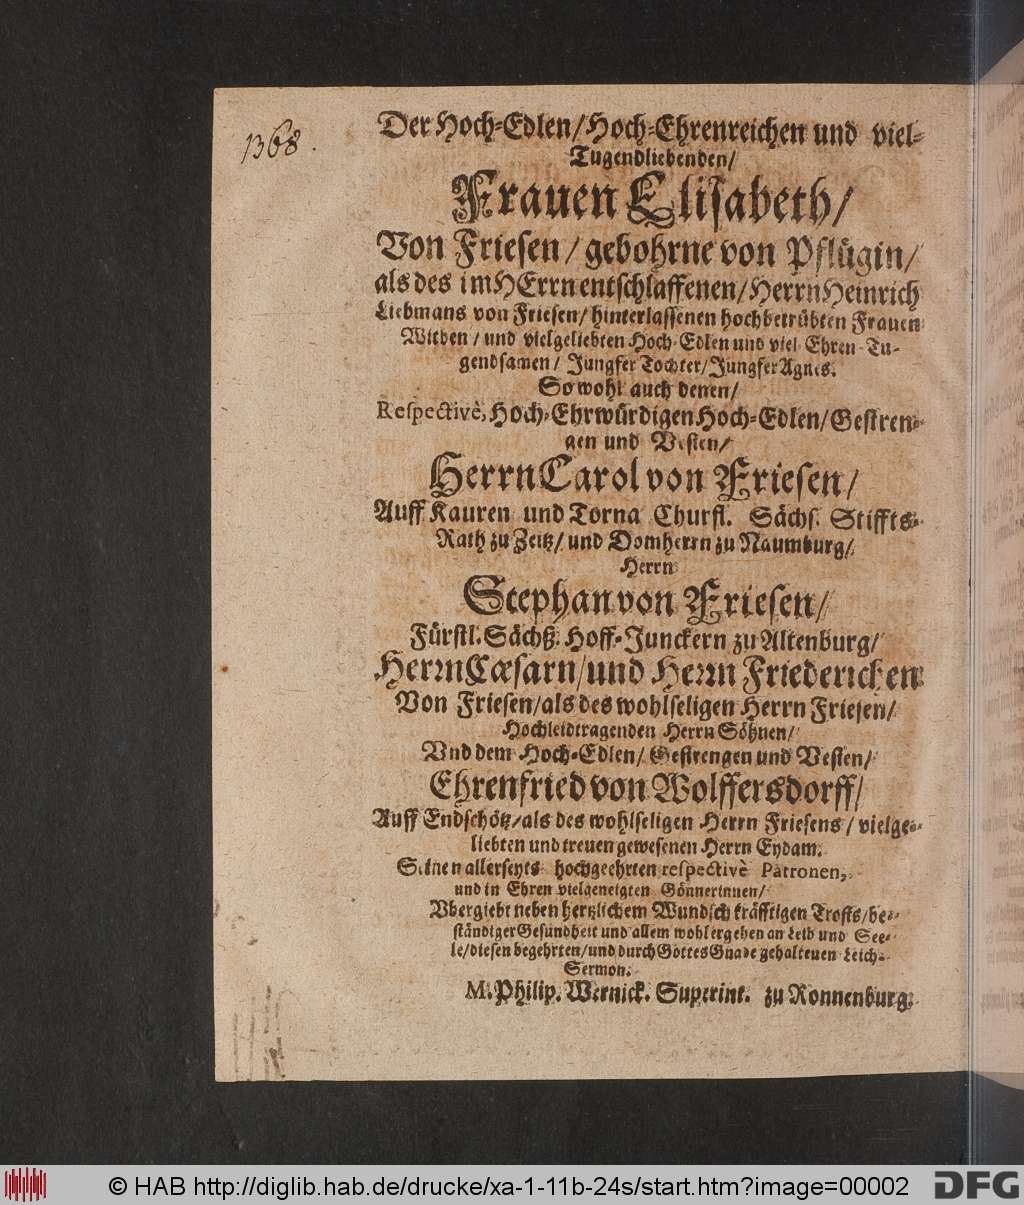 1368.
Der Hoch-Edlen/Hoch-Ehrenreichen und viel-
Tugendliebenden/
Frauen Elisabeth/
Von Friesen/gebohrne von Pflügin/
als des im HErrn entschlaffenen/Herrn Heinrich
Liebmans von Friesen/hinterlassenen hochbetrübten Frauen
Witben/und vielgeliebten Hoch-Edlen und viel Ehren-Tu-
gendsamen/Jungfer Tochter/Jungfer Agnes.
So wohl auch denen/
Respectivè, Hoch-Ehrwürdigen Hoch-Edlen/Gestren-
gen und Vesten/
Herrn Carol von Friesen/
Auff Kauren und Torna Churfl. Sächs. Stiffts-
Rath zu Zeitz/und Domherrn zu Naumburg/
Herrn
Stephan von Friesen/
Fürstl. Sächß. Hoff-Junckern zu Altenburg/
Herrn Cæsarn/und Herrn Friederichen
Von Friesen/als des wohlseligen Herrn Friesen/
Hochleidtragenden Herrn Söhnen/
Vnd dem Hoch-Edlen/Gestrengen und Vesten/
Ehrenfried von Wolffersdorff/
Auff Endschötz/als des wohlseligen Herrn Friesens/vielge-
liebten und treuen gewesenen Herrn Eydam.
Seinen allerseyts hochgeehrten respectivè Patronen,
und in Ehren vielgeneigten Gönnerinnen/
Vbergiebt neben hertzlichem Wundsch kräfftigen Trosts/be-
ständiger Gesundheit und allem wohlergehen an Leib und See-
le/diesen begehrten/und durch Gottes Gnade gehaltenen Leich-
Sermon.
M. Philip. Wernick. Superint. zu Ronnenburg.
© HAB http://diglib.hab.de/drucke/xa-1-11b-24s/start.htm?image=00002
DFG